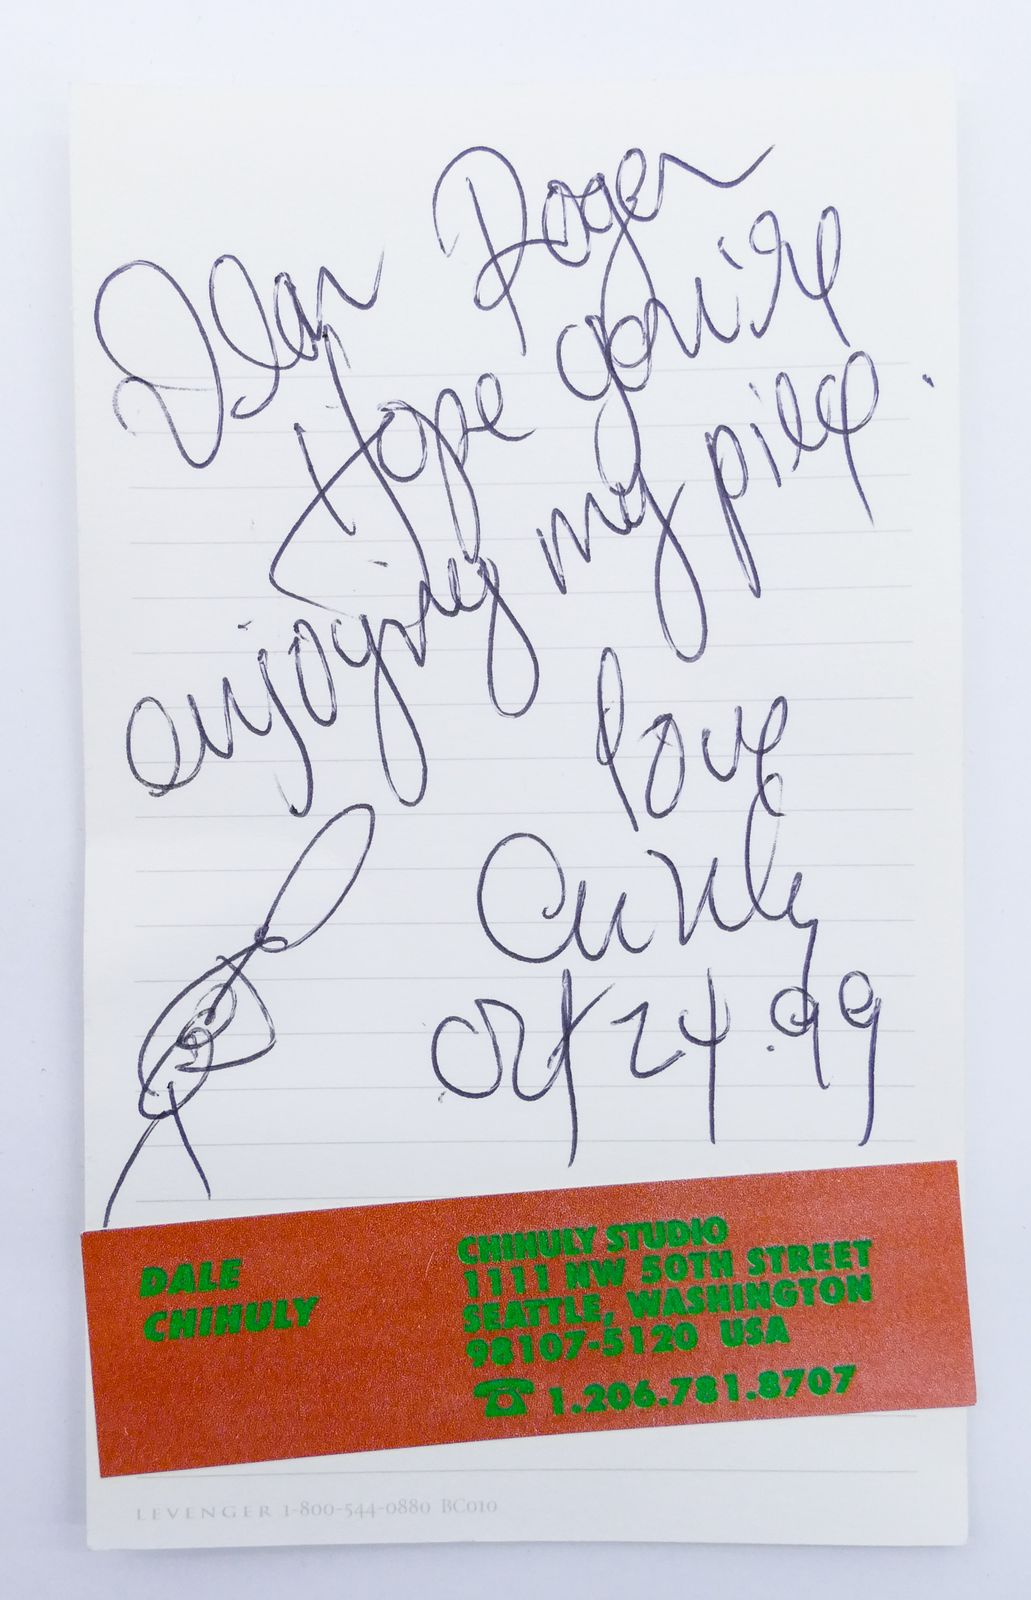 Dear Roger
Hope you're
enjoying my piece.
love
Chihuly
Oct 24.99
DALE
CHIHULY
CHIHULY STUDIO
1111 NW 50TH STREET
SEATTLE, WASHINGTON
98107-5120 USA
1.206.781.8707
LEVENGER 1-800-544-0880 BC010